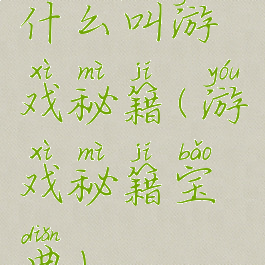 什么叫游
xì mì jí yóu
戏秘籍(游
xì mì jí bǎo
戏秘籍宝
diǎn
典)